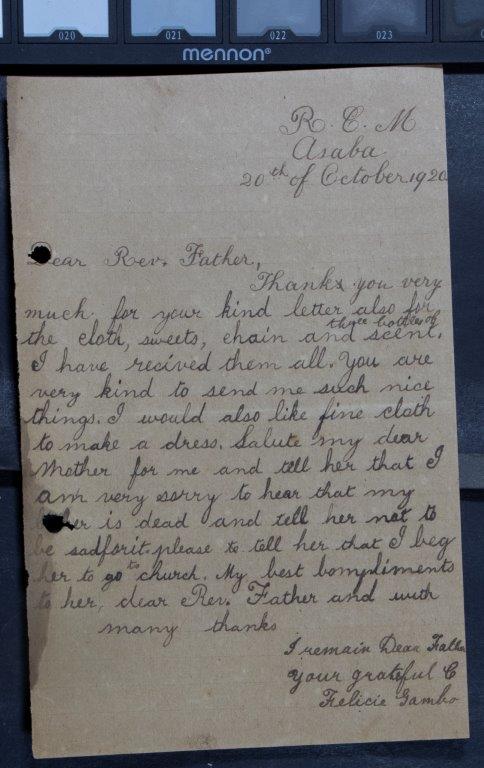 020 021 022 023
mennon®
R. C. M
Asaba
20th of October 1920
Dear Rev. Father,
Thanks you very
much for your kind letter also for
the cloth, sweets, chain and three bottles of scent.
I have recived them all. You are
very kind to send me such nice
things. I would also like fine cloth
to make a dress. Salute my dear
Mother for me and tell her that I
am very sorry to hear that my
is dead and tell her not to
be sad for it. please to tell her that I beg
her to go to church. My best compliments
to her, dear Rev. Father and with
many thanks
I remain Dear Father
your grateful C
Felicie Gambo